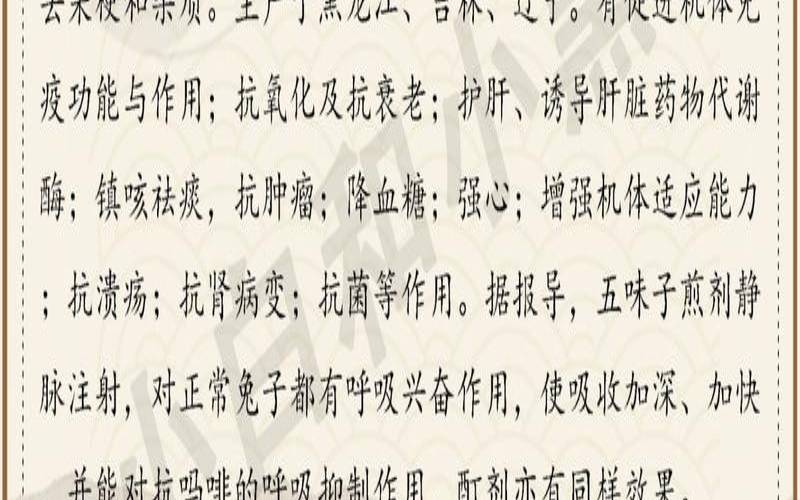 去果梗和杂质。主产于黑龙江、吉林、辽宁。有促进机体免
疫功能与作用；抗氧化及抗衰老；护肝、诱导肝脏药物代谢
酶；镇咳祛痰，抗肿瘤；降血糖；强心；增强机体适应能力
；抗溃疡；抗肾病变；抗菌等作用。据报导，五味子煎剂静
脉注射，对正常兔子都有呼吸兴奋作用，使吸收加深、加快
，并能对抗吗啡的呼吸抑制作用。酊剂亦有同样效果。
小白和小黑